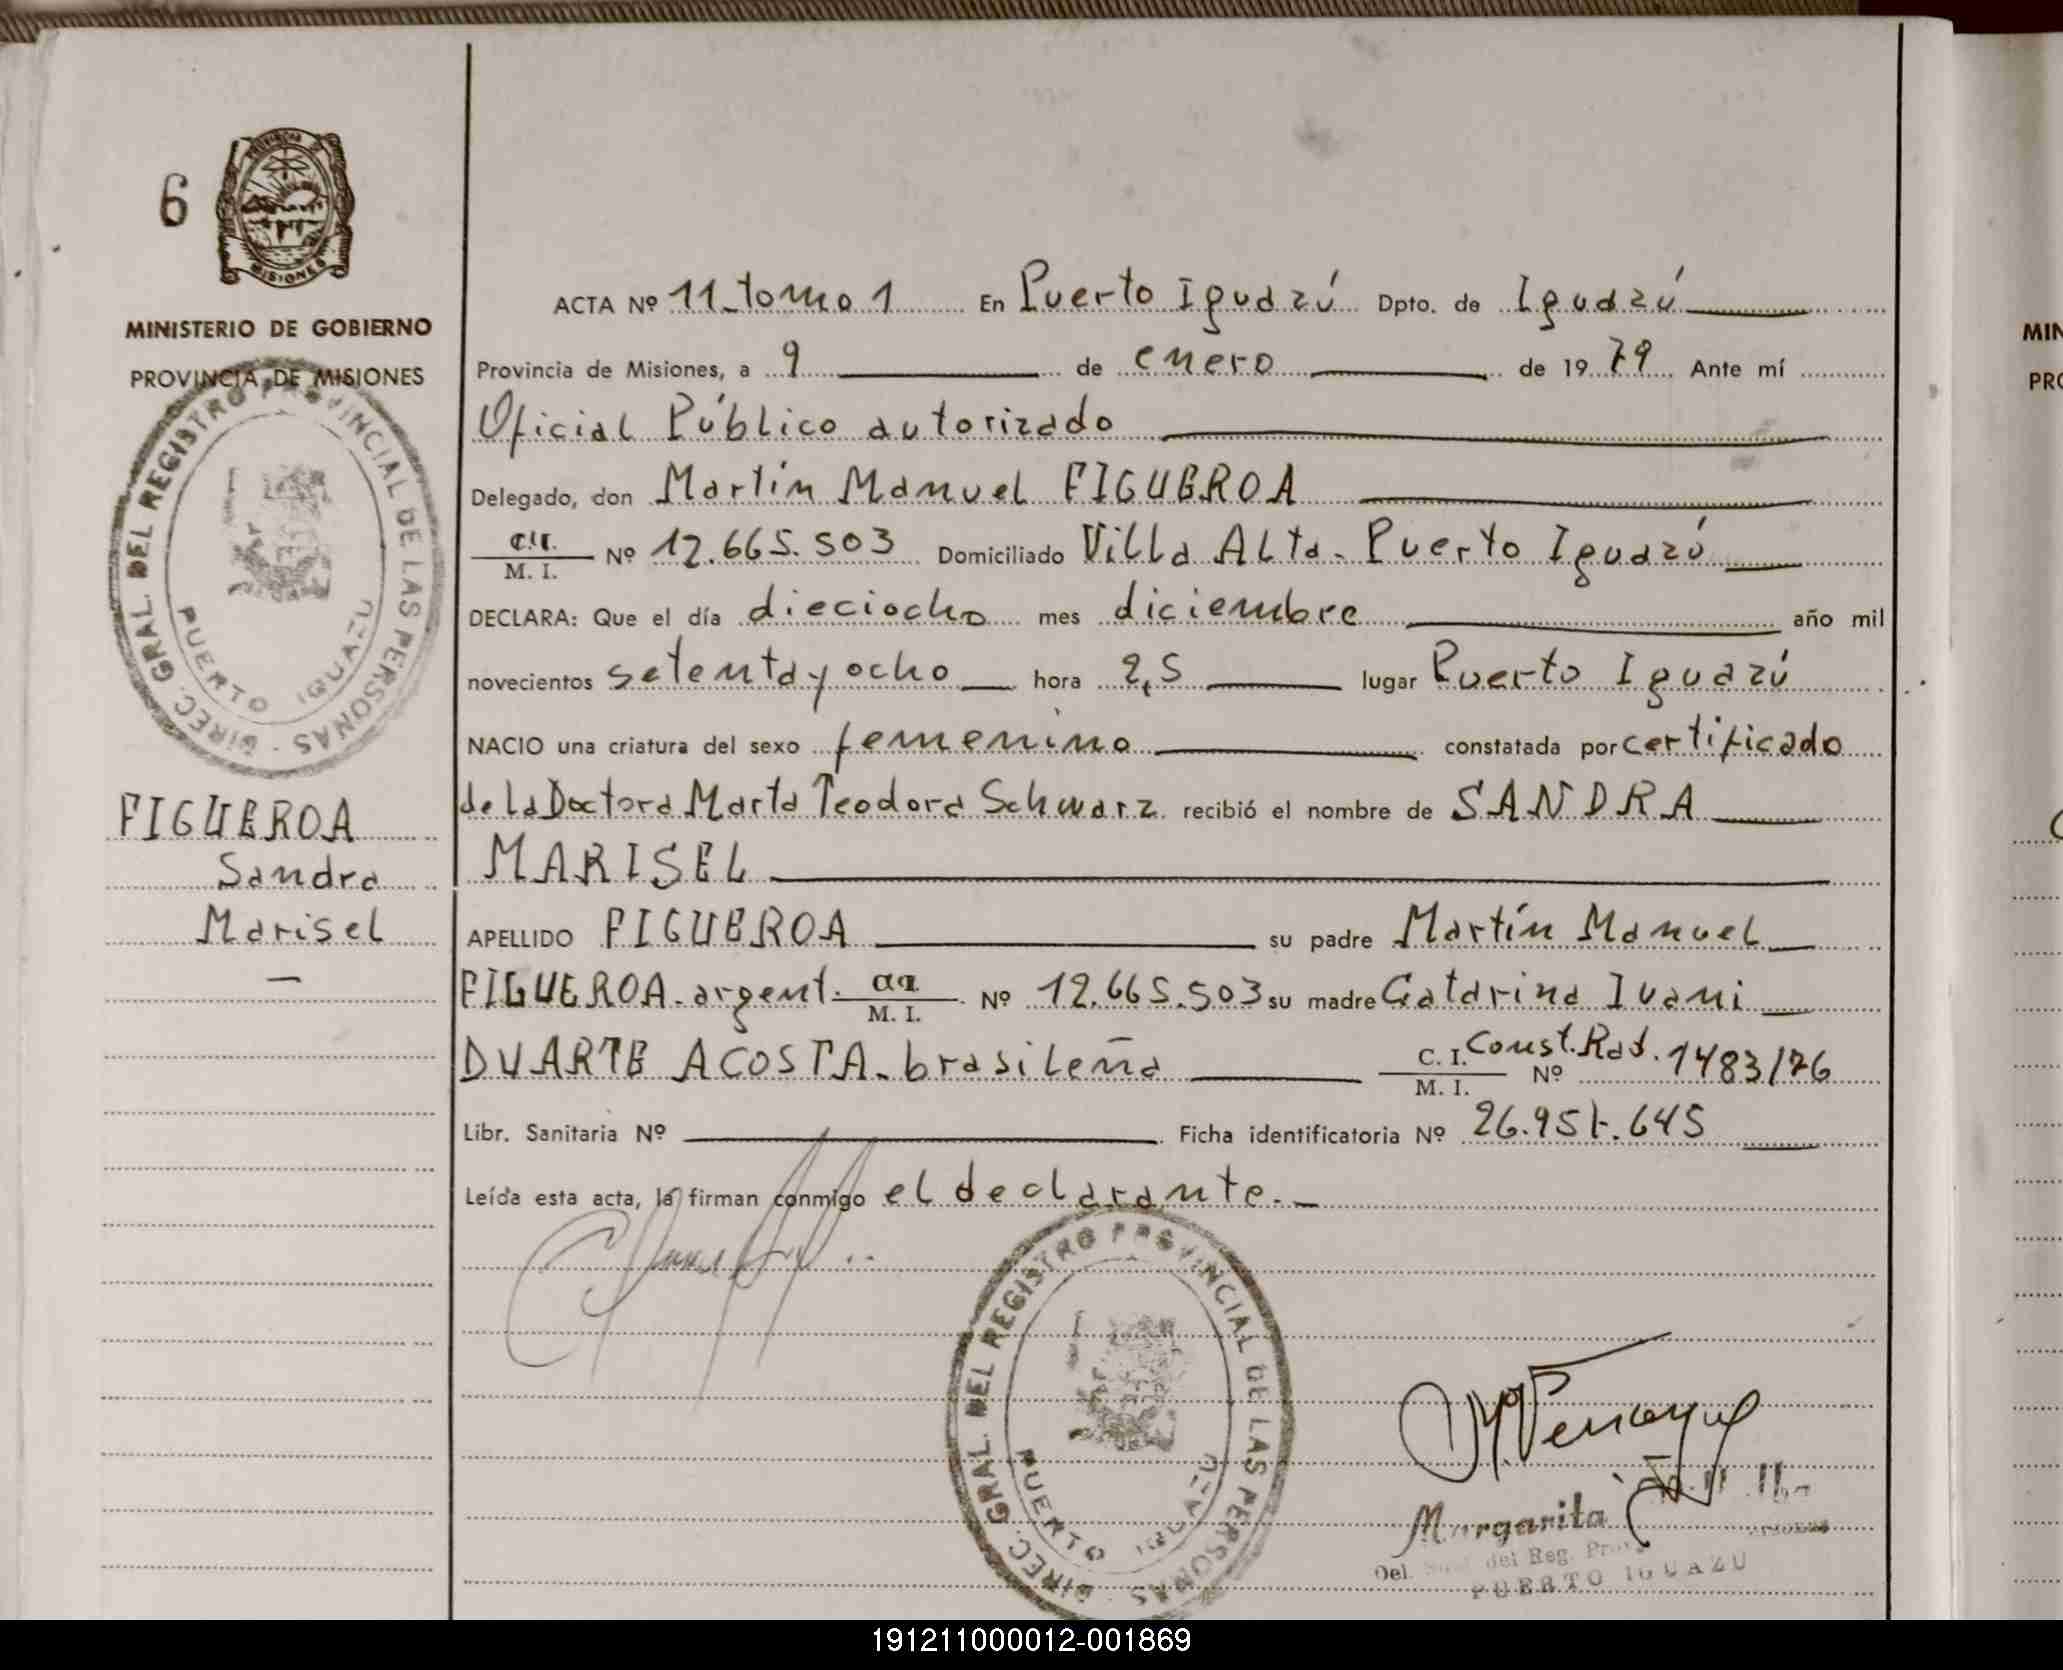 6
PROVINCIA DE
MISIONES
MINISTERIO DE GOBIERNO
PROVINCIA DE MISIONES
DIREC. GRAL. DEL REGISTRO PROVINCIAL DE LAS PERSONAS
PUERTO IGUAZU
FIGUEROA
Sandra
Marisel
ACTA Nº 11 tomo 1 En Puerto Iguazú Dpto. de Iguazú
Provincia de Misiones, a 9 de enero de 1979 Ante mí
Oficial Público autorizado
Delegado, don Martín Manuel FIGUEROA
M. I. Nº 12.665.503 Domiciliado Villa Alta - Puerto Iguazú
DECLARA: Que el día dieciocho mes diciembre año mil
novecientos setenta y ocho hora 2,5 lugar Puerto Iguazú
NACIO una criatura del sexo femenino constatada por certificado
de la Doctora Marta Teodora Schwarz recibió el nombre de SANDRA
MARISEL
APELLIDO FIGUEROA su padre Martín Manuel
FIGUEROA - argent. M. I. Nº 12.665.503 su madre Catarina Ivani
DUARTE ACOSTA - brasileña C. I. M. I. Nº Const. Rad. 1483/76
Libr. Sanitaria Nº Ficha identificatoria Nº 26.951.645
Leída esta acta, la firman conmigo el declarante. -
DIREC. GRAL. DEL REGISTRO PROVINCIAL DE LAS PERSONAS
PUERTO IGUAZU
Margarita
Del. del Reg.
PUERTO IGUAZU
MIN
PRO
191211000012-001869